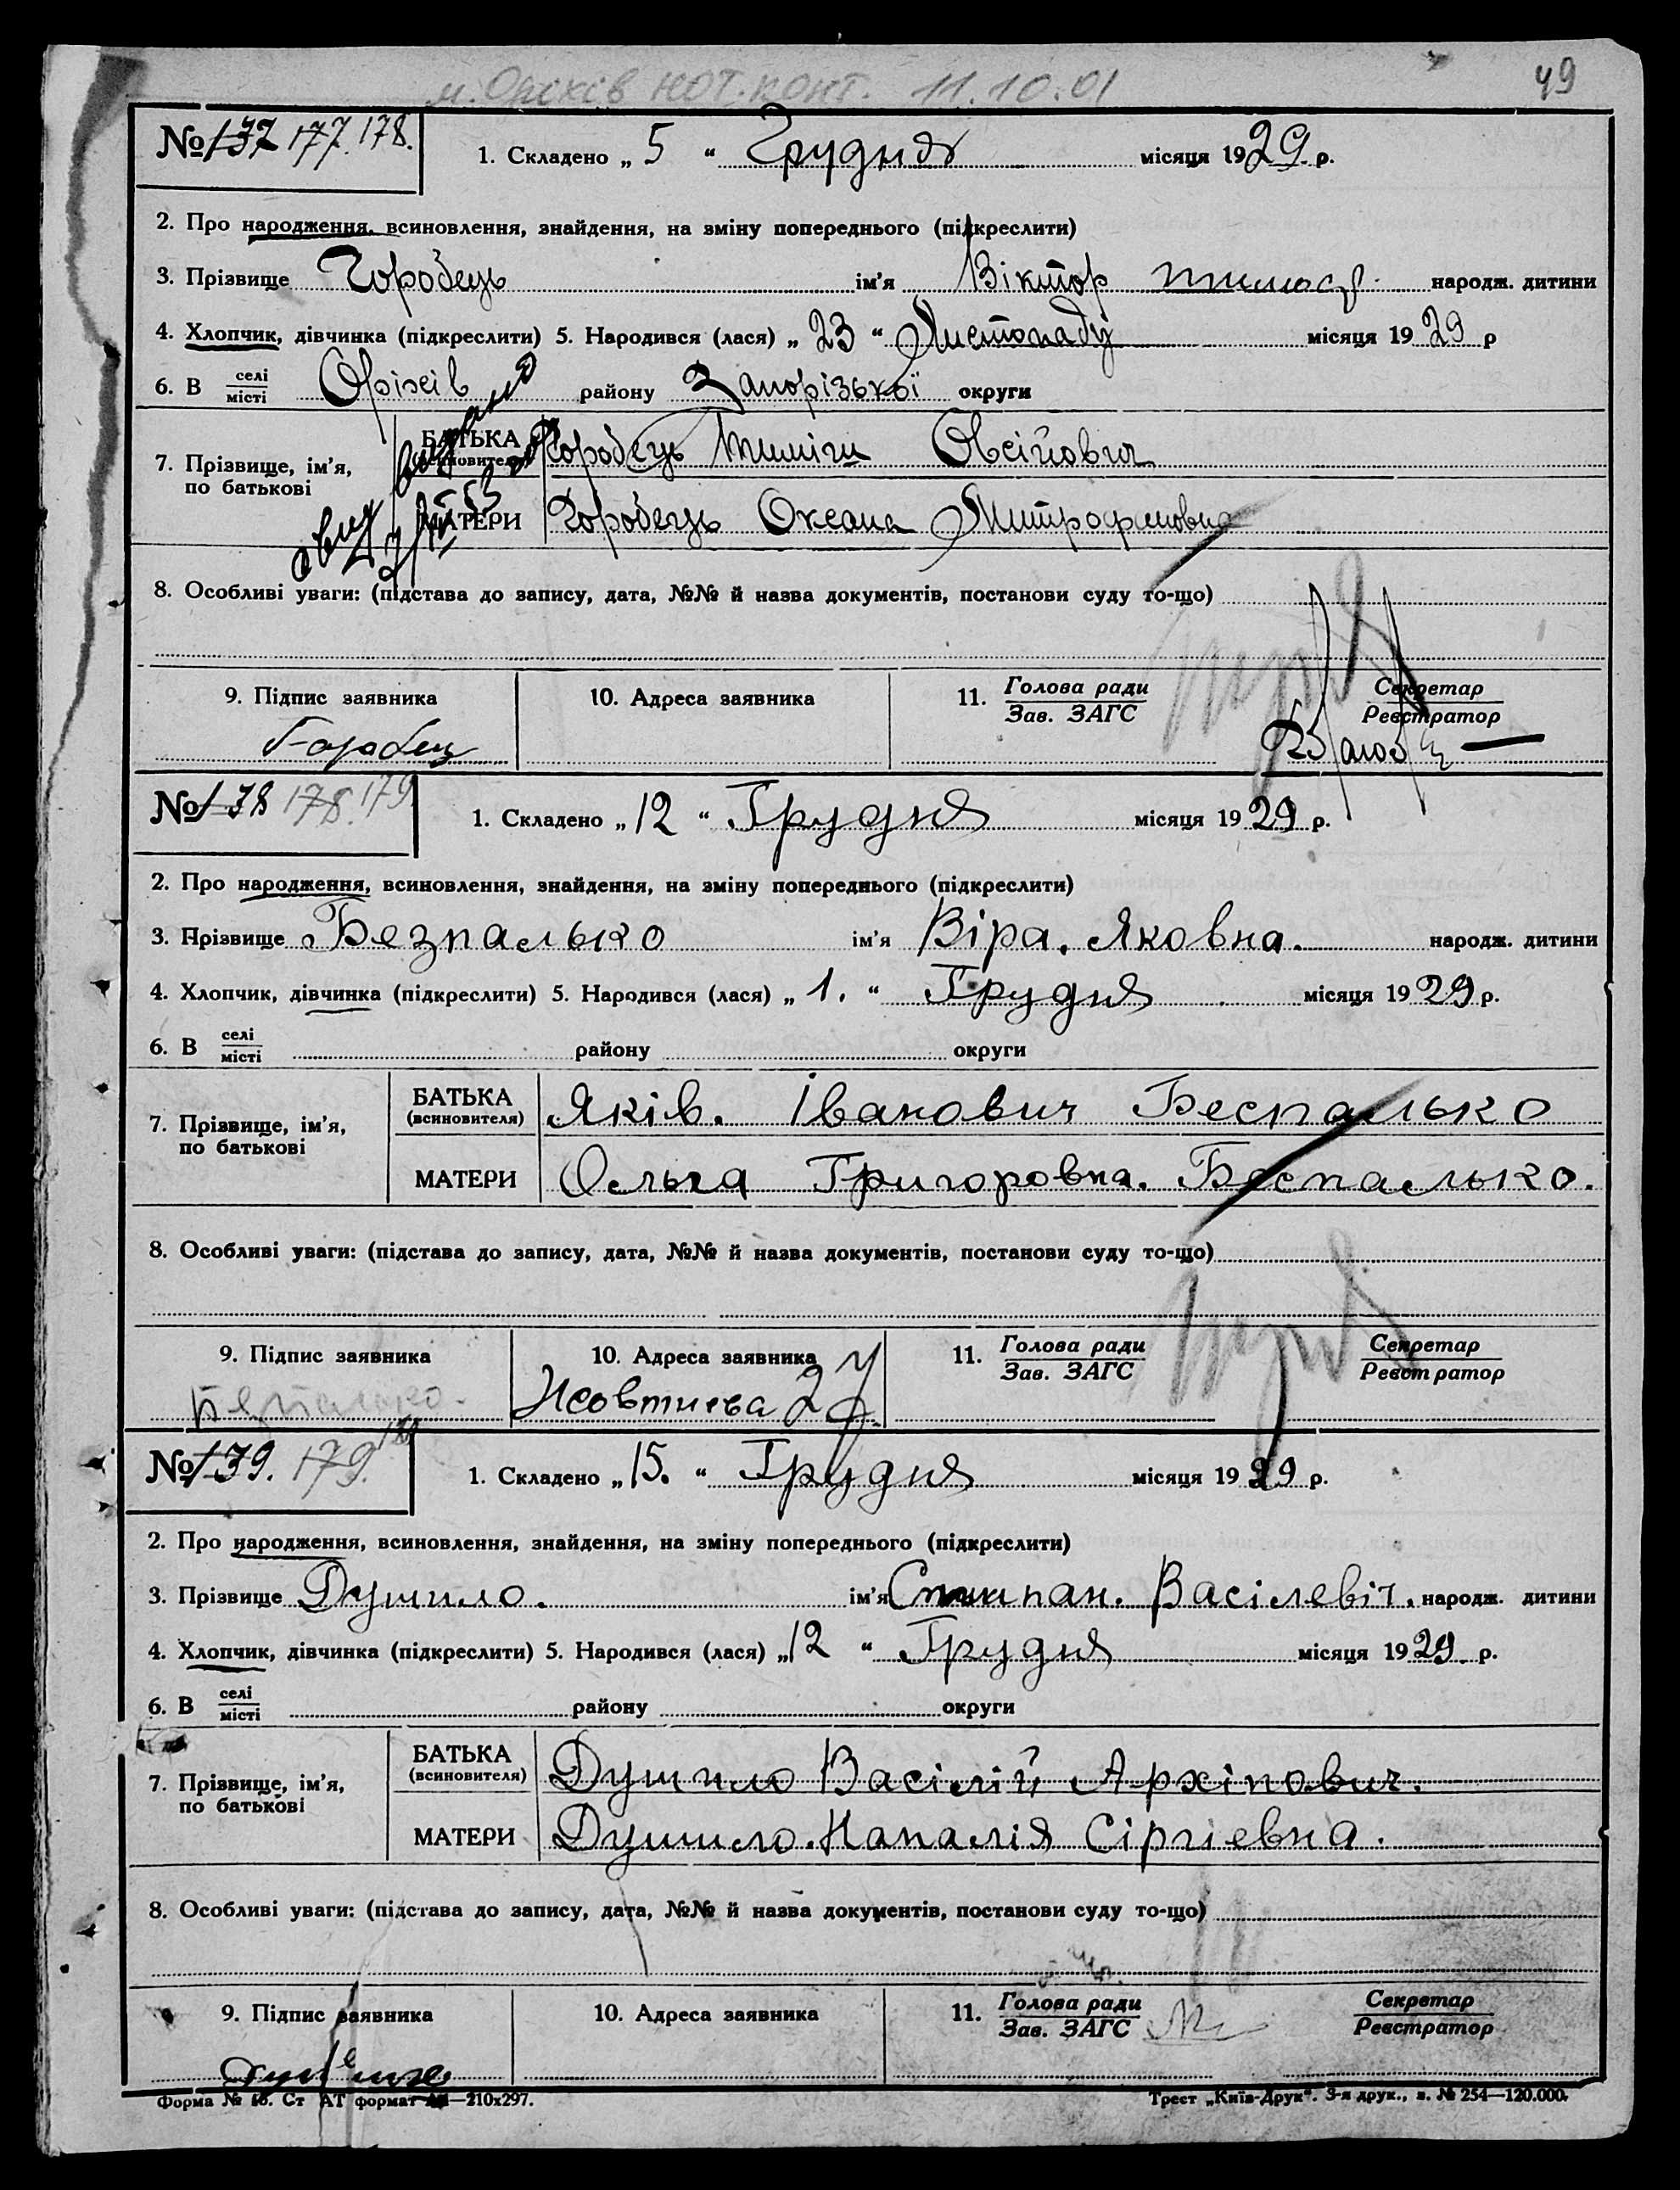 м. Оріхів нот. конт. 11.10.01
49
№ 137 177. 178.
1. Складено „ 5 “ Грудня місяця 1929 р.
2. Про народження, всиновлення, знайдення, на зміну попереднього (підкреслити)
3. Прізвище Горобець ім'я Віктор народж. дитини
4. Хлопчик, дівчинка (підкреслити) 5. Народився (лася) „ 23 “ Листопаду місяця 1929 р
6. В селі місті Оріхів району Запорізької округи
7. Прізвище, ім'я, по батькові
БАТЬКА (всиновителя) Горобець Тиміш Овсійович
МАТЕРИ Горобець Оксана Митрофановна
8. Особливі уваги: (підстава до запису, дата, №№ й назва документів, постанови суду то-що)
9. Підпис заявника 10. Адреса заявника 11. Голова ради Зав. ЗАГС Секретар Реєстратор
Горобец
№ 138 178. 179
1. Складено „ 12 “ Грудня місяця 1929 р.
2. Про народження, всиновлення, знайдення, на зміну попереднього (підкреслити)
3. Прізвище Безпалько ім'я Віра. Яковна. народж. дитини
4. Хлопчик, дівчинка (підкреслити) 5. Народився (лася) „ 1. “ Грудня місяця 1929 р.
6. В селі місті району округи
7. Прізвище, ім'я, по батькові
БАТЬКА (всиновителя) Яків. Іванович Беспалько
МАТЕРИ Ольга Григоровна. Беспалько.
8. Особливі уваги: (підстава до запису, дата, №№ й назва документів, постанови суду то-що)
9. Підпис заявника 10. Адреса заявника 11. Голова ради Зав. ЗАГС Секретар Реєстратор
Безпалько.
№ 139. 179.
1. Складено „ 15. “ Грудня місяця 1929 р.
2. Про народження, всиновлення, знайдення, на зміну попереднього (підкреслити)
3. Прізвище Душило. ім'я Васілевіч. народж. дитини
4. Хлопчик, дівчинка (підкреслити) 5. Народився (лася) „ 12 “ Грудня місяця 1929. р.
6. В селі місті району округи
7. Прізвище, ім'я, по батькові
БАТЬКА (всиновителя) Душило Васілій Архіпович.
МАТЕРИ Душило. Наталія Сіргіевна.
8. Особливі уваги: (підстава до запису, дата, №№ й назва документів, постанови суду то-що)
9. Підпис заявника 10. Адреса заявника 11. Голова ради Зав. ЗАГС Секретар Реєстратор
Форма № 1б. Ст АТ формат А4—210х297.
Трест „Київ-Друк“. 3-я друк., з. № 254—120.000.